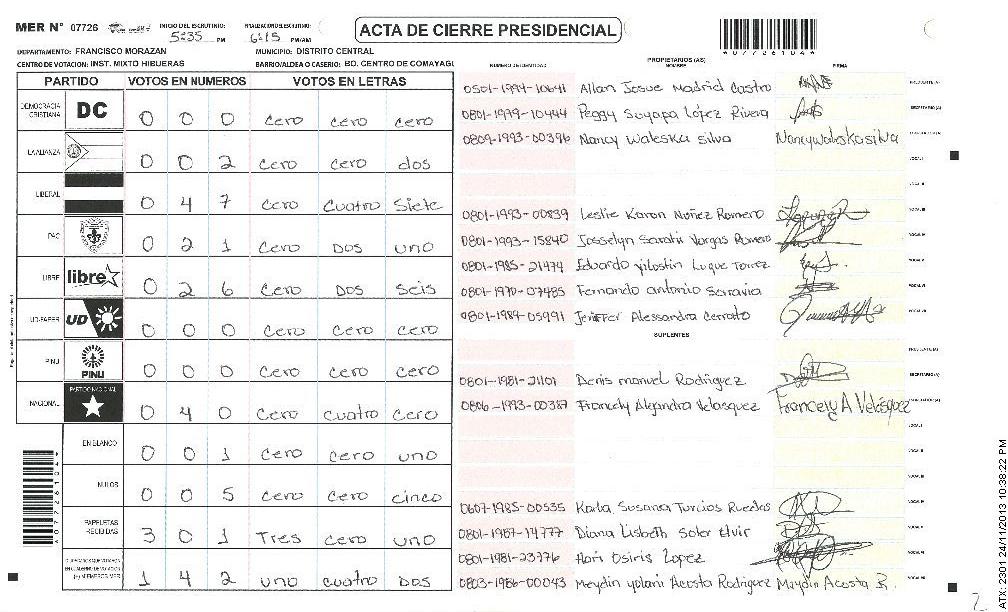 MER N° 07726 INICIO DEL ESCRUTINIO: 5:35 PM FINALIZACION DEL ESCRUTINIO: 6:15 PM/AM
ACTA DE CIERRE PRESIDENCIAL
DEPARTAMENTO: FRANCISCO MORAZAN MUNICIPIO: DISTRITO CENTRAL
CENTRO DE VOTACION: INST. MIXTO HIBUERAS BARRIO/ALDEA O CASERIO: BO. CENTRO DE COMAYAGU
PARTIDO VOTOS EN NUMEROS VOTOS EN LETRAS
DEMOCRACIA CRISTIANA DC 0 0 0 cero cero cero
LA ALIANZA 0 0 2 cero cero dos
LIBERAL 0 4 7 cero cuatro siete
PAC 0 2 1 cero Dos uno
LIBRE libre 0 2 6 cero Dos seis
UD-FAPER UD 0 0 0 cero cero cero
PINU PINU 0 0 0 cero cero cero
NACIONAL PARTIDO NACIONAL 0 4 0 cero cuatro cero
EN BLANCO 0 0 1 cero cero uno
NULOS 0 0 5 cero cero cinco
PAPELETAS RECIBIDAS 3 0 1 Tres cero uno
1 4 2 uno cuatro Dos
NUMERO DE IDENTIDAD PROPIETARIOS (AS) NOMBRE FIRMA
0501-1994-10641 Allan Josue Madrid Castro PRESIDENTE (A)
0801-1979-10444 Peggy Suyapa López Rivera SECRETARIO (A)
0809-1993-00396 Nancy Waleska silva Nancy waleska silva
0801-1993-00839 Leslie Karon Nuñez Romero
0801-1993-15840 Josselyn Sarahi Vargas Romero
0801-1985-21474 Eduardo Luque Torrez
0801-1970-07485 Fernando antonio Sarravia
0801-1989-05991 Jeniffer Alessandra Cerrato
SUPLENTES
0801-1981-21101 Denis manuel Rodriguez
0806-1993-00387 Francely Alejandra Velasquez Francely A Velásquez
0607-1985-00535 Karla Susana Turcios Ruedas
0801-1987-14777 Diana Lisbeth Soler Elvir
0801-1981-23776 Osiris Lopez
0803-1986-00043 Meydin yolani Acosta Rodriguez Meydin Acosta R.
ATX-2301 24/11/2013 10:38:22 PM